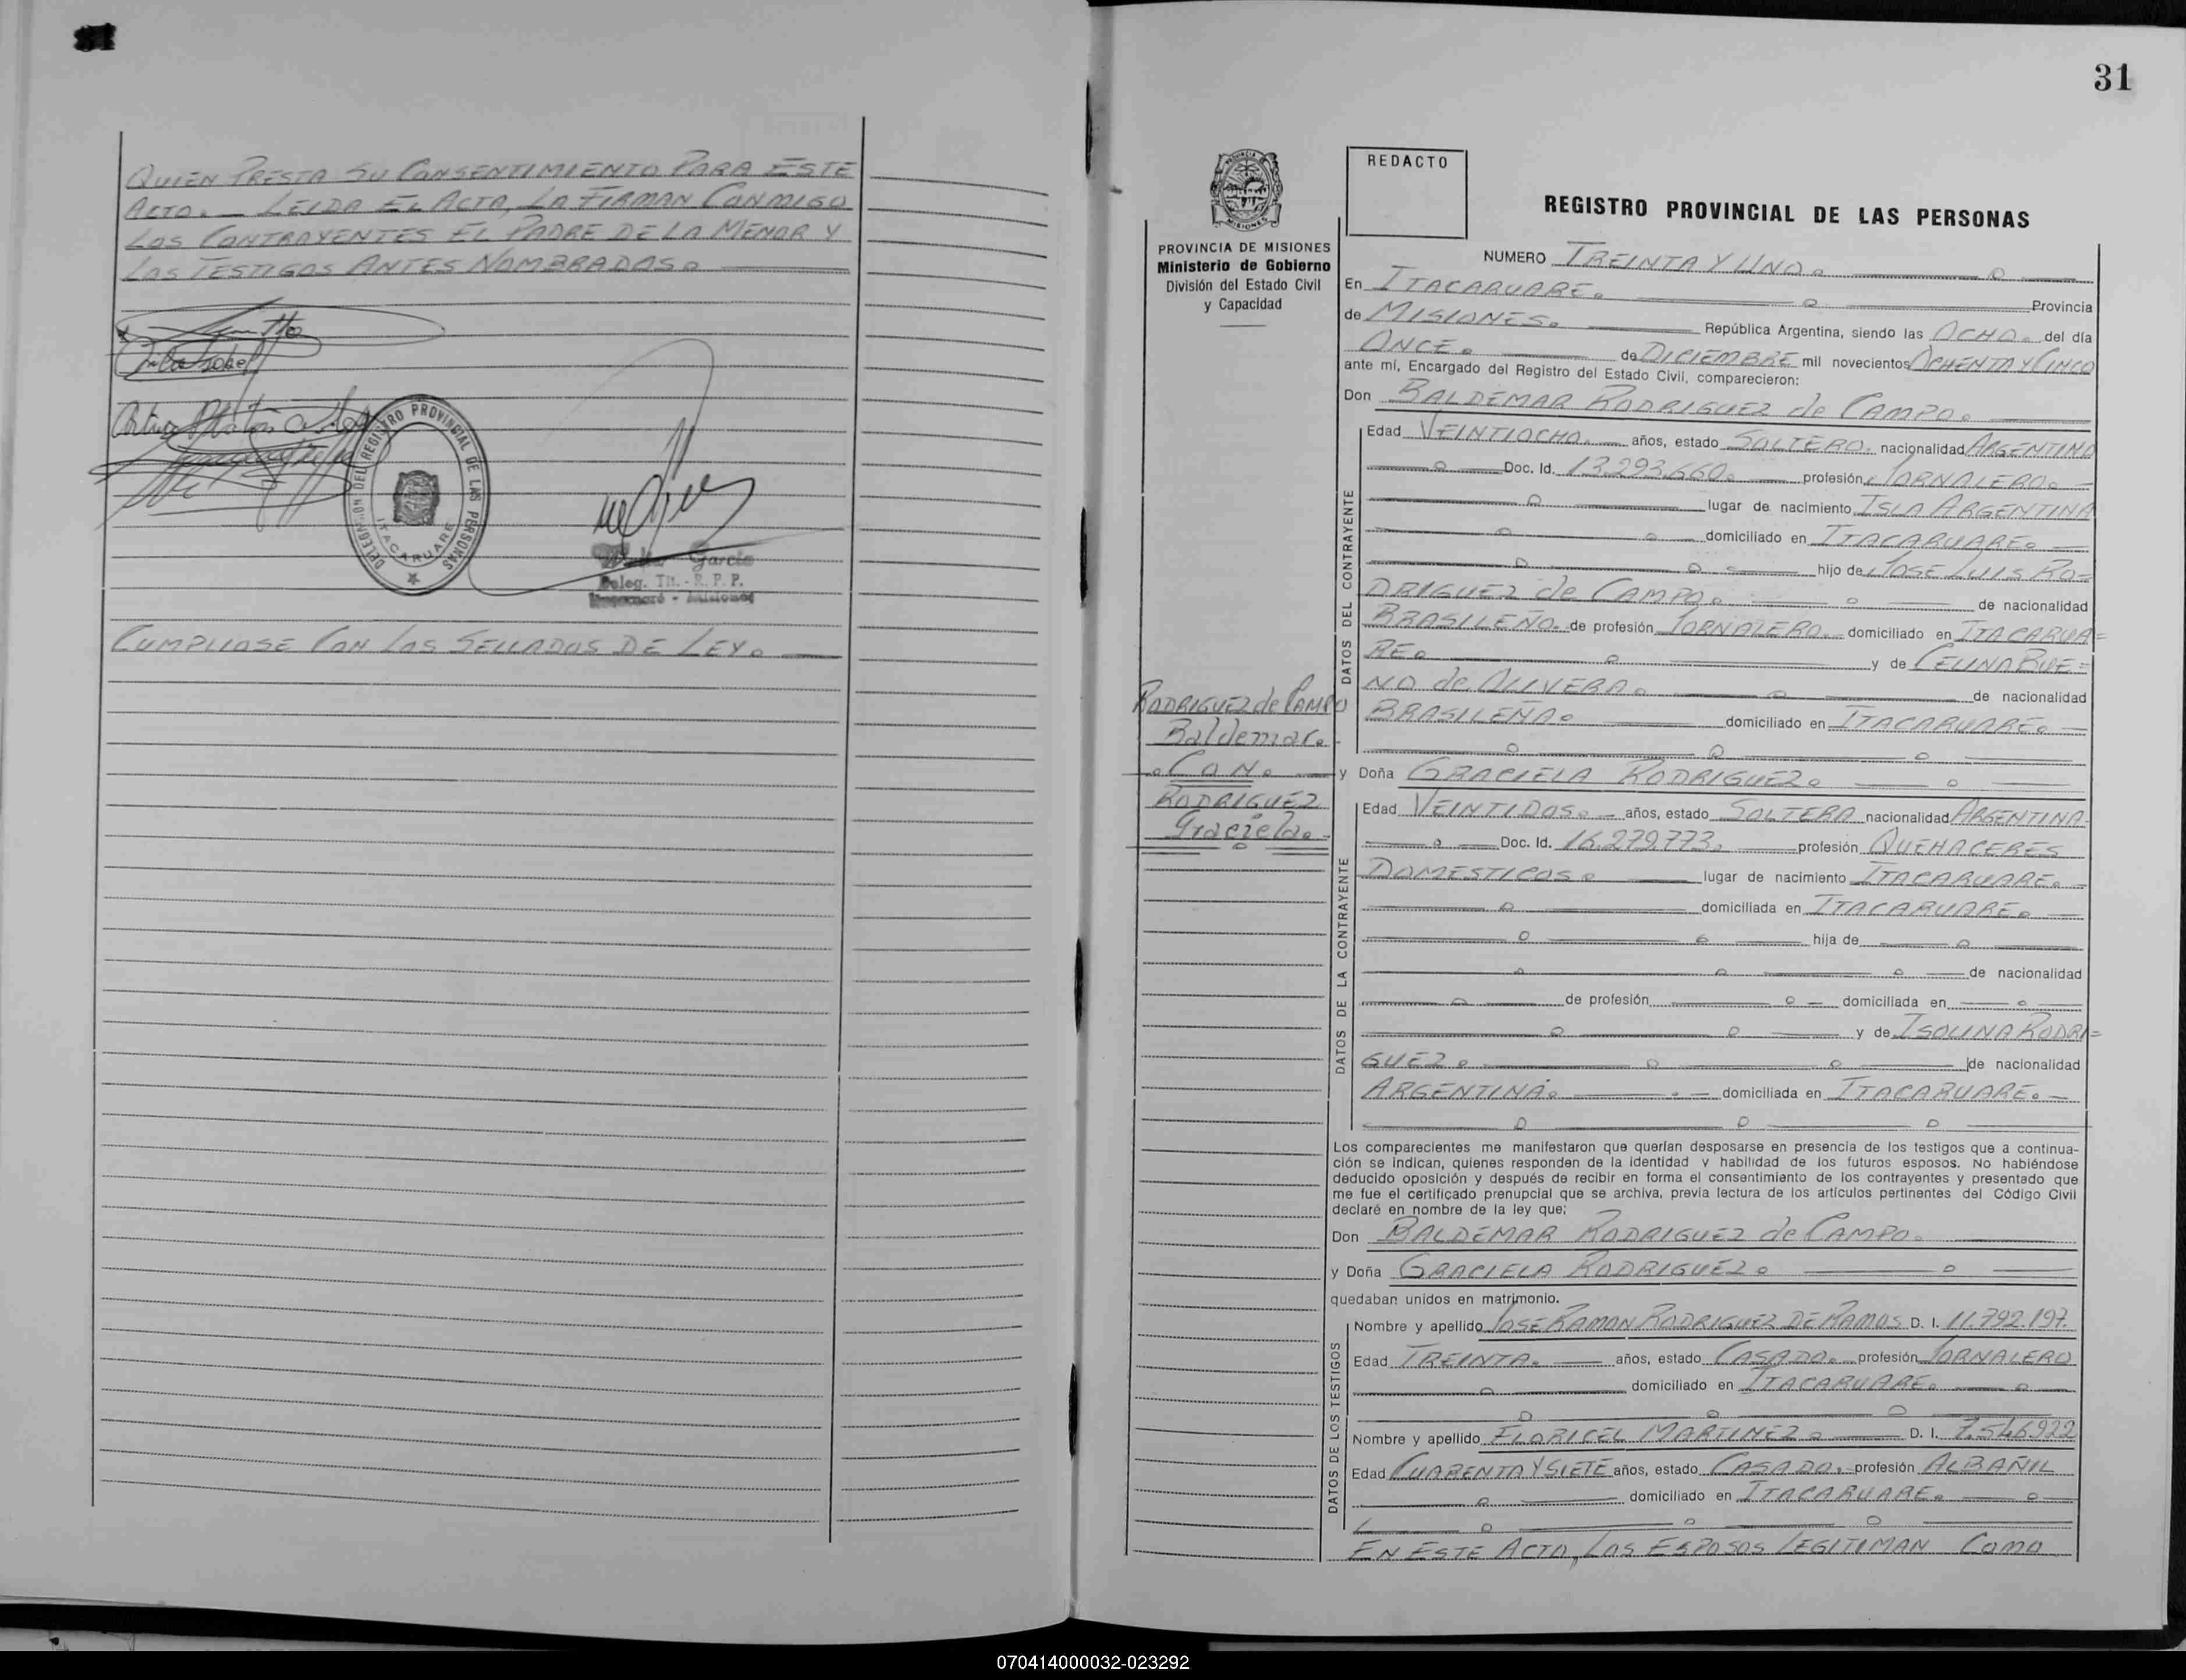 QUIEN PRESTA SU CONSENTIMIENTO PARA ESTE
ACTO. — LEIDA EL ACTA, LA FIRMAN CONMIGO
LOS CONTRAYENTES EL PADRE DE LA MENOR Y
LOS TESTIGOS ANTES NOMBRADOS.
DELEGACIÓN DEL REGISTRO PROVINCIAL DE LAS PERSONAS
ITACARUARE
García
Deleg. Tit. - R. P. P.
Itacaruaré - Misiones
CUMPLIOSE CON LOS SELLADOS DE LEY.
31
PROVINCIA DE MISIONES
Ministerio de Gobierno
División del Estado Civil
y Capacidad
RODRIGUEZ de CAMPO
Baldemar.
CON.
RODRIGUEZ
Graciela.
REDACTO
REGISTRO PROVINCIAL DE LAS PERSONAS
NUMERO TREINTA Y UNO.
En ITACARUARE. Provincia
de MISIONES. República Argentina, siendo las OCHO. del día
ONCE. de DICIEMBRE mil novecientos OCHENTA Y CINCO
ante mí, Encargado del Registro del Estado Civil, comparecieron:
Don BALDEMAR RODRIGUEZ de CAMPO.
DATOS DEL CONTRAYENTE
Edad VEINTIOCHO. años, estado SOLTERO. nacionalidad ARGENTINA
Doc. Id. 13.293.660. profesión JORNALERO.
lugar de nacimiento ISLA ARGENTINA
domiciliado en ITACARUARE.
hijo de JOSE LUIS RO=
DRIGUEZ de CAMPO. de nacionalidad
BRASILEÑO. de profesión JORNALERO. domiciliado en ITACARUA=
RE. y de CELINA BUE=
NO de OLIVERA. de nacionalidad
BRASILEÑA. domiciliado en ITACARUARE.
y Doña GRACIELA RODRIGUEZ.
DATOS DE LA CONTRAYENTE
Edad VEINTIDOS. años, estado SOLTERA nacionalidad ARGENTINA
Doc. Id. 16.279.773. profesión QUEHACERES
DOMESTICOS. lugar de nacimiento ITACARUARE.
domiciliada en ITACARUARE.
hija de
de nacionalidad
de profesión domiciliada en
y de ISOLINA RODRI=
GUEZ. de nacionalidad
ARGENTINA. domiciliada en ITACARUARE.
Los comparecientes me manifestaron que querían desposarse en presencia de los testigos que a continua-
ción se indican, quienes responden de la identidad y habilidad de los futuros esposos. No habiéndose
deducido oposición y después de recibir en forma el consentimiento de los contrayentes y presentado que
me fue el certificado prenupcial que se archiva, previa lectura de los artículos pertinentes del Código Civil
declaré en nombre de la ley que:
Don BALDEMAR RODRIGUEZ de CAMPO.
y Doña GRACIELA RODRIGUEZ.
quedaban unidos en matrimonio.
DATOS DE LOS TESTIGOS
Nombre y apellido JOSE RAMON RODRIGUEZ DE RAMOS D. I. 11.792.197.
Edad TREINTA. años, estado CASADO. profesión JORNALERO
domiciliado en ITACARUARE.
Nombre y apellido FLORICEL MARTINEZ. D. I. 7.546922
Edad CUARENTA Y SIETE años, estado CASADO. profesión ALBAÑIL
domiciliado en ITACARUARE.
EN ESTE ACTO, LOS ESPOSOS LEGITIMAN COMO
070414000032-023292